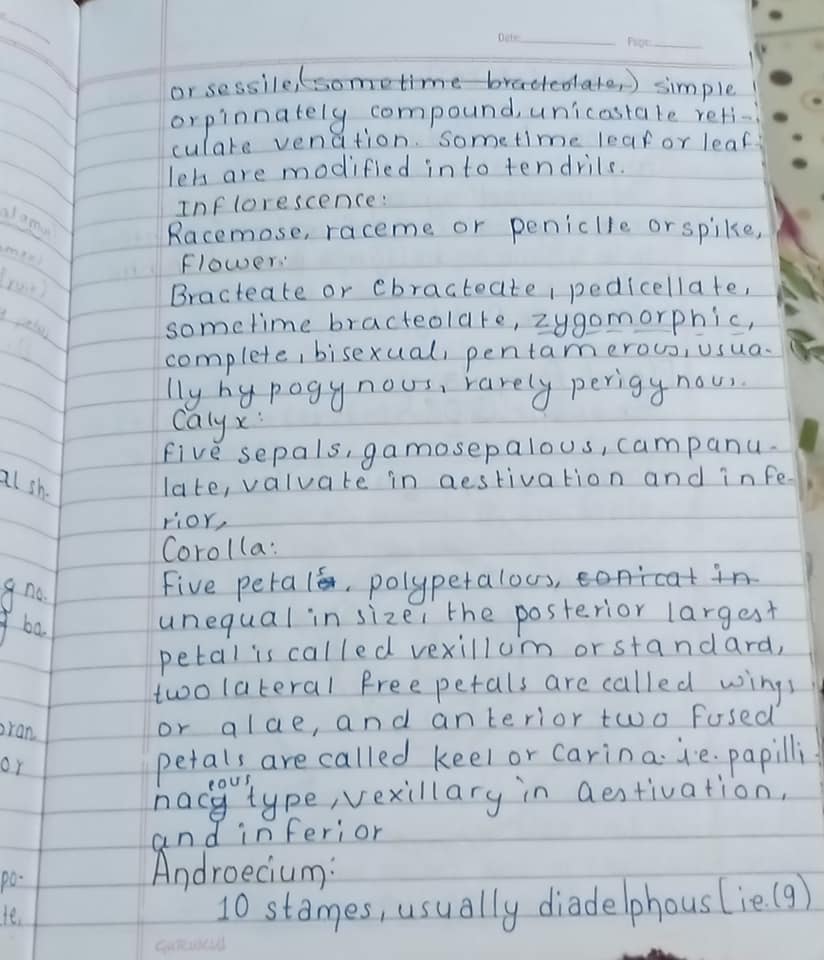 Date Page
or sessile, (sometime bracteolate,) simple
or pinnately compound, unicostate reti-
culate venation. Sometime leaf or leaf-
lets are modified into tendrils.
Inflorescence:
Racemose, raceme or peniclle or spike,
Flower:
Bracteate or ebracteate, pedicellate,
sometime bracteolate, zygomorphic,
complete, bisexual, pentamerous, usua-
lly hypogynous, rarely perigynous.
Calyx:
Five sepals, gamosepalous, campanu-
late, valvate in aestivation and infe-
rior,
Corolla:
Five petals, polypetalous, conicat in
unequal in size, the posterior largest
petal is called vexillum or standard,
two lateral free petals are called wings
or alae, and anterior two fused
petals are called keel or carina. i.e. papilli-
naceous type, vexillary in aestivation,
and inferior
Androecium:
10 stames, usually diadelphous [ie.(9)